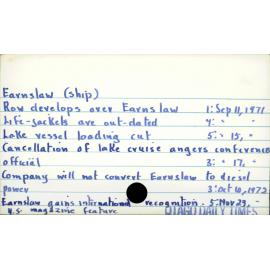 Earnslaw (ship)
Row develops over Earnslaw 1: Sep 11, 1971
Life-jackets are out-dated 4: " "
Lake vessel loading cut 5: " 15, "
Cancellation of lake cruise angers conference
official 3: " 17, "
Company will not convert Earnslaw to diesel
power 3: Oct 10, 1972
Earnslaw gains international recognition. 5: Nov 23, "
U.S. magazine feature OTAGO DAILY TIMES